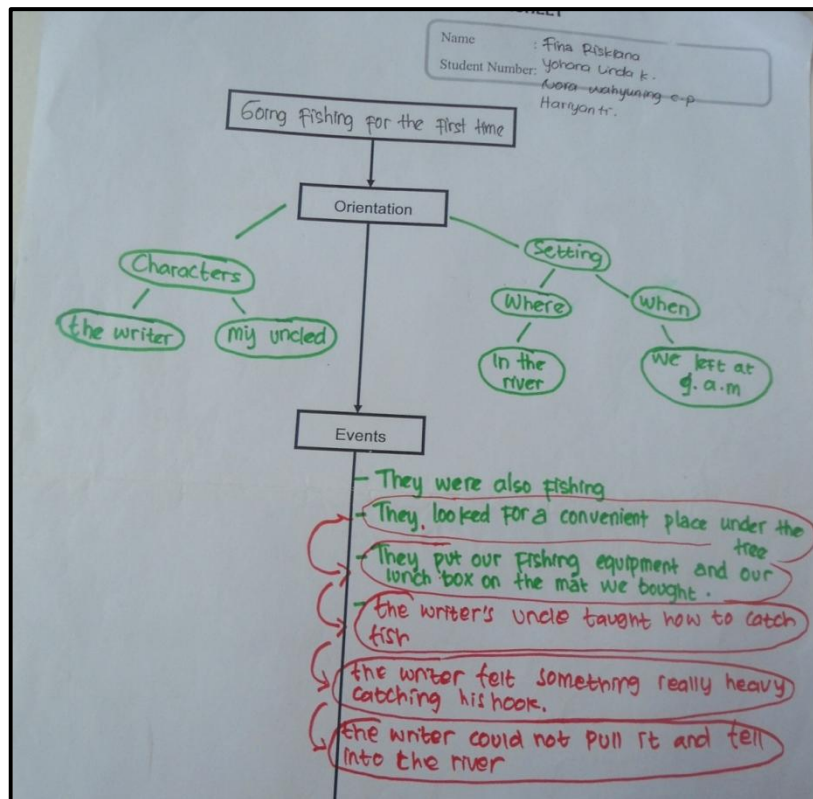 Name : Fina Riskiana
Student Number: Yohana Linda k.
Nora Wahyuning C.P
Hariyanti.
Going fishing for the first time
Orientation
Characters
the writer
my uncled
Setting
Where
In the
river
when
we left at
9.a.m
Events
- They were also fishing
- They, looked for a convenient place under the
tree
- They put our fishing equipment and our
lunch box on the mat we bought.
- the writer's uncle taught how to catch
fish
the writer felt something really heavy
catching his hook.
the writer could not pull it and fell
into the river